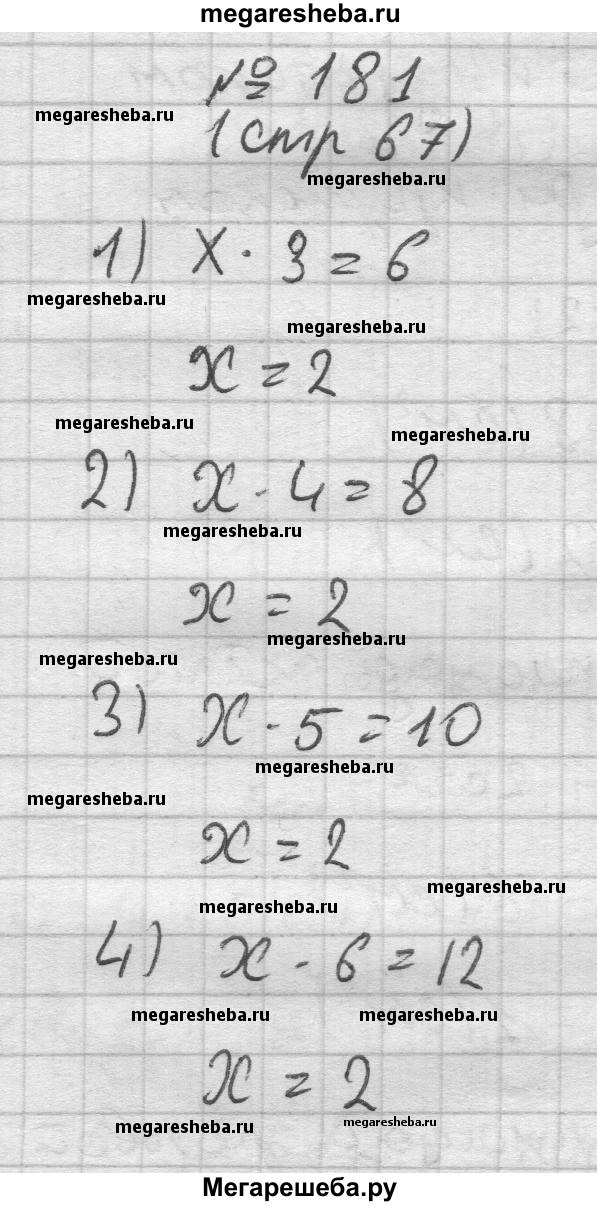 megaresheba.ru
№ 181
megaresheba.ru
(стр 67)
megaresheba.ru
1) x · 3 = 6
megaresheba.ru
megaresheba.ru
x = 2
megaresheba.ru
megaresheba.ru
2) x · 4 = 8
megaresheba.ru
x = 2
megaresheba.ru
megaresheba.ru
3) x · 5 = 10
megaresheba.ru
megaresheba.ru
x = 2
megaresheba.ru
megaresheba.ru
4) x · 6 = 12
megaresheba.ru megaresheba.ru
x = 2
megaresheba.ru
megaresheba.ru
Мегарешеба.ру